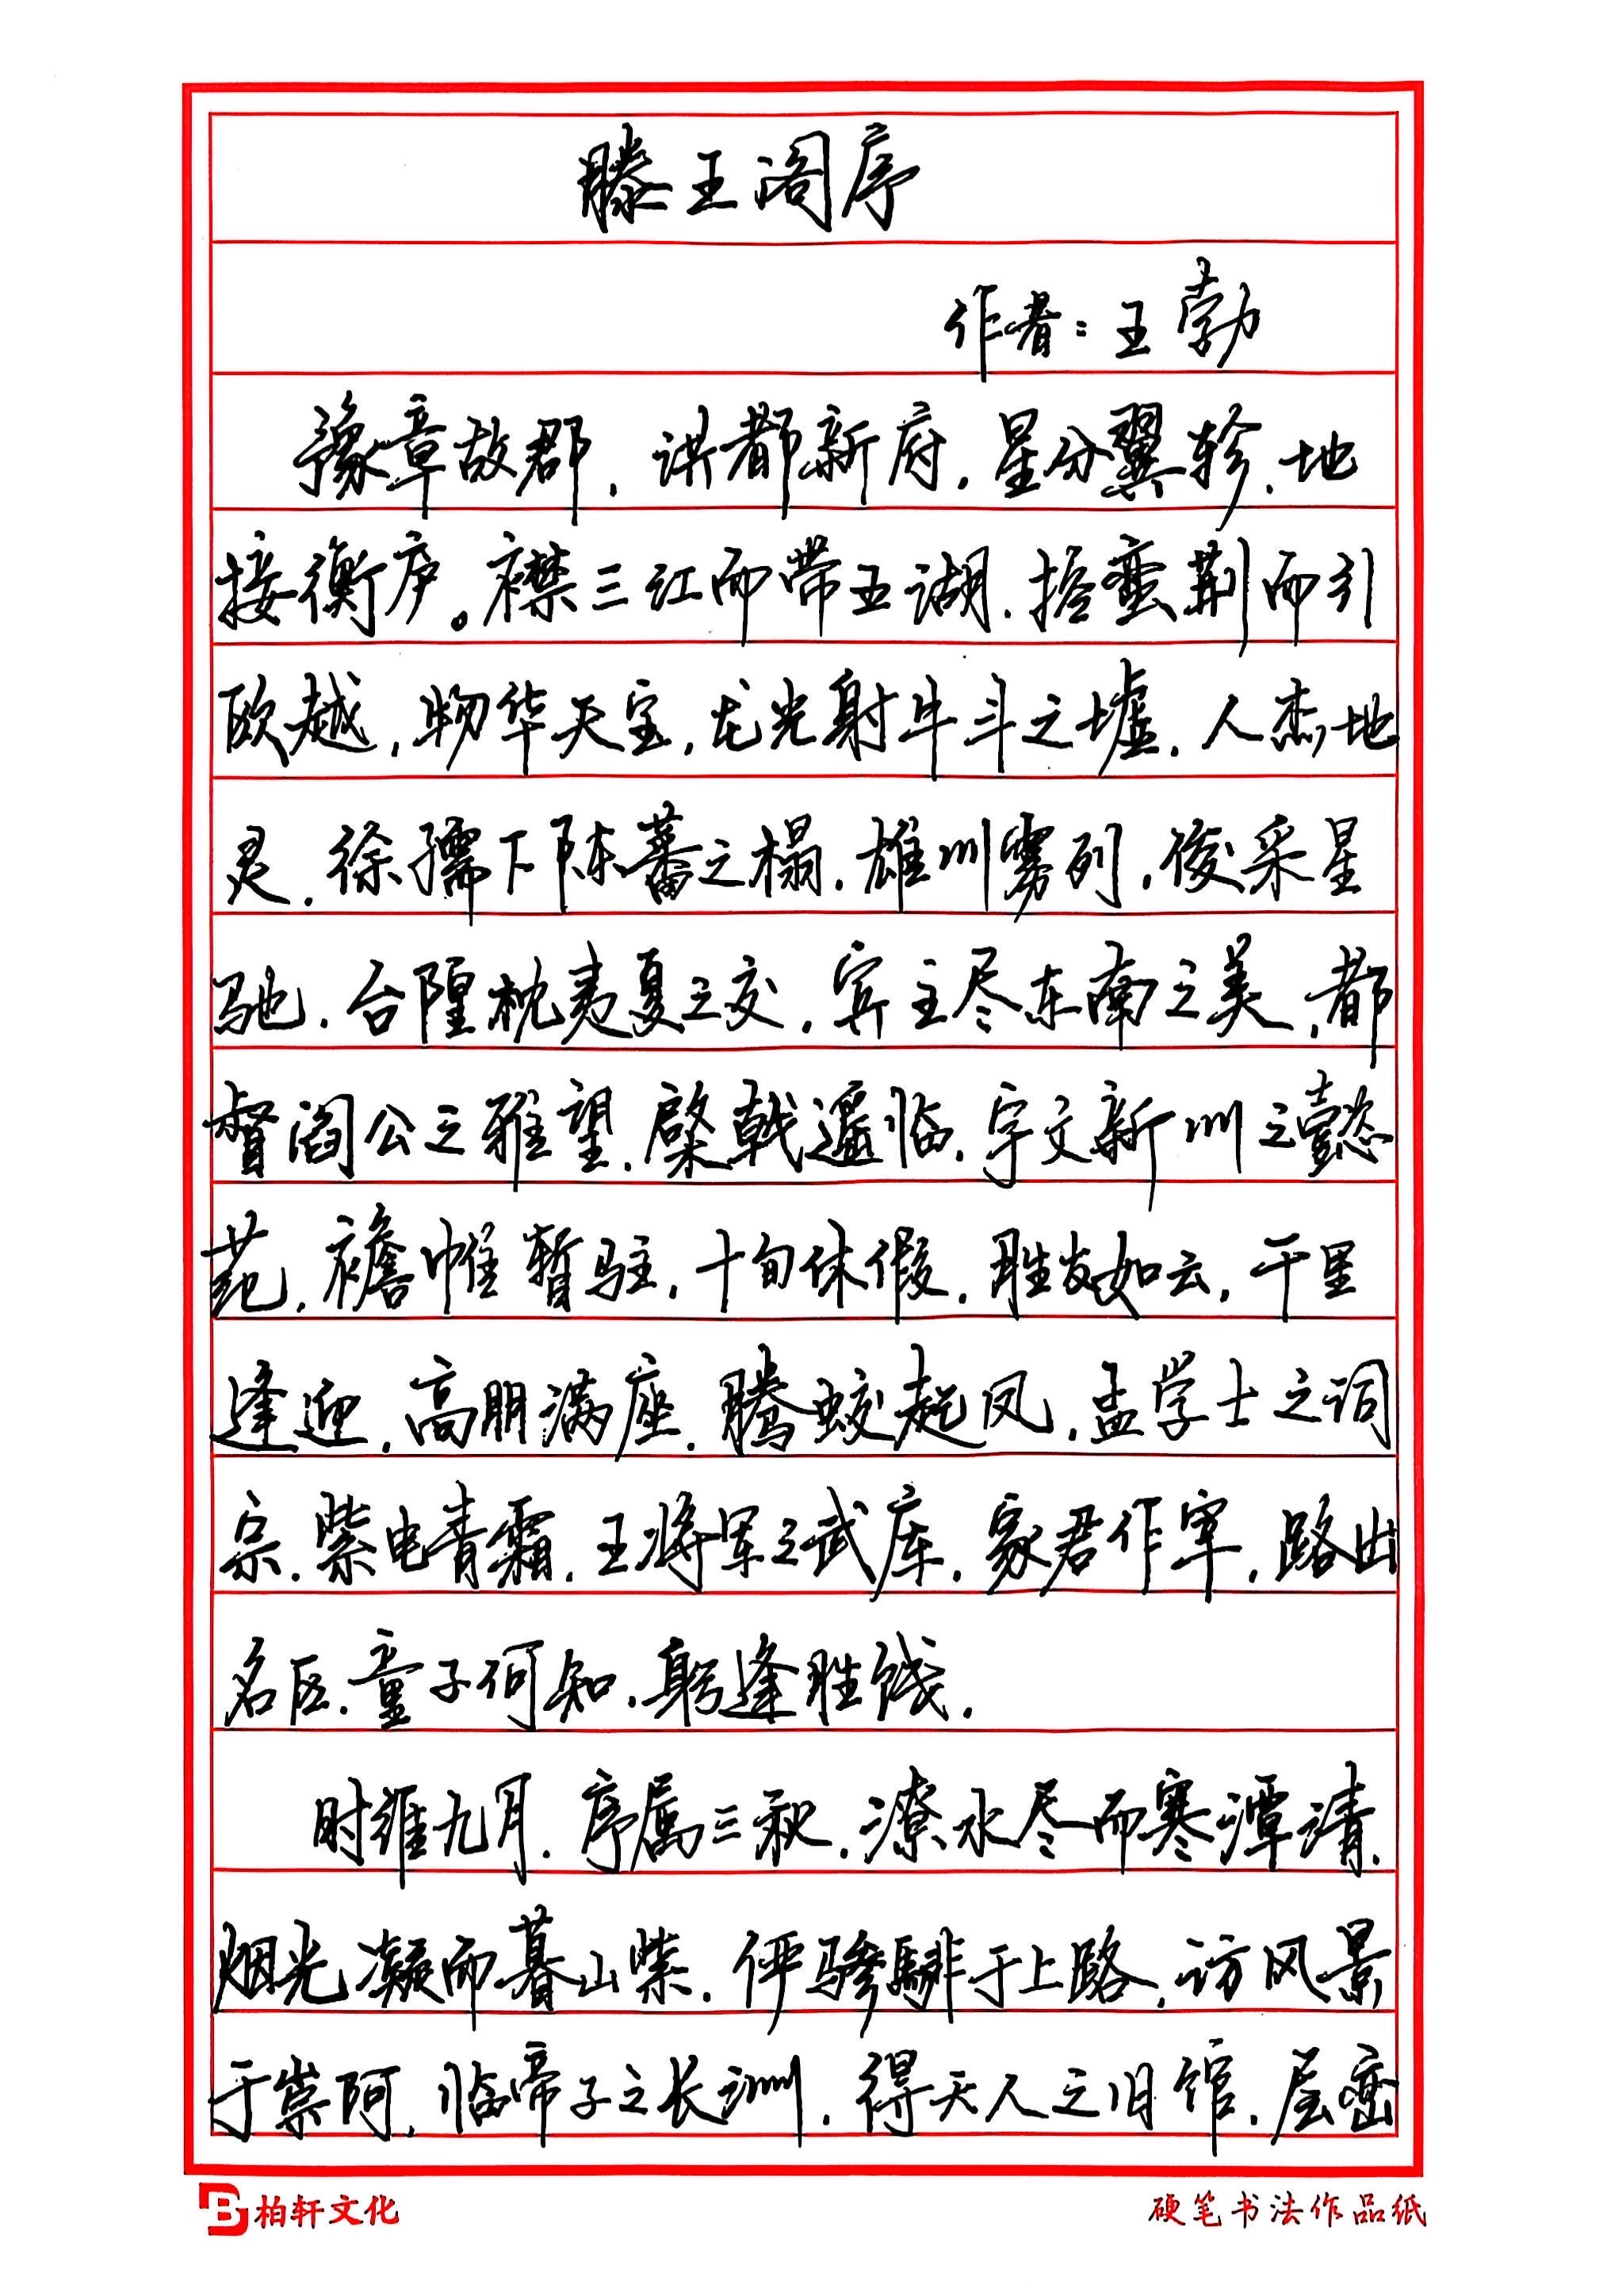 滕王阁序
作者：王勃
豫章故郡，洪都新府，星分翼轸，地
接衡庐。襟三江而带五湖，控蛮荆而引
欧越，物华天宝，龙光射牛斗之墟，人杰地
灵，徐孺下陈蕃之榻，雄州雾列，俊采星
驰，台隍枕夷夏之交，宾主尽东南之美，都
督阎公之雅望，棨戟遥临，宇文新州之懿
范，襜帷暂驻，十旬休假，胜友如云，千里
逢迎，高朋满座，腾蛟起凤，孟学士之词
宗，紫电青霜，王将军之武库，家君作宰，路出
名区，童子何知，躬逢胜饯，
时维九月，序属三秋，潦水尽而寒潭清，
烟光凝而暮山紫，俨骖騑于上路，访风景
于崇阿，临帝子之长洲，得天人之旧馆，层峦
柏轩文化
硬笔书法作品纸